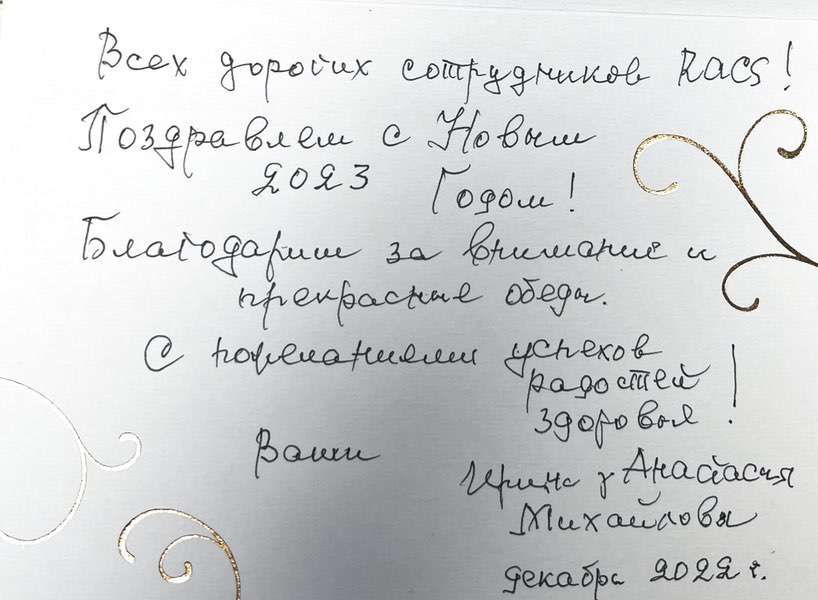 Всех дорогих сотрудников RACS!
Поздравляем с Новым
2023 Годом!
Благодарим за внимание и
прекрасные обеды.
С пожеланиями успехов
радостей
здоровья!
Ваши
Ирина Анастасия
Михайловы
декабрь 2022 г.